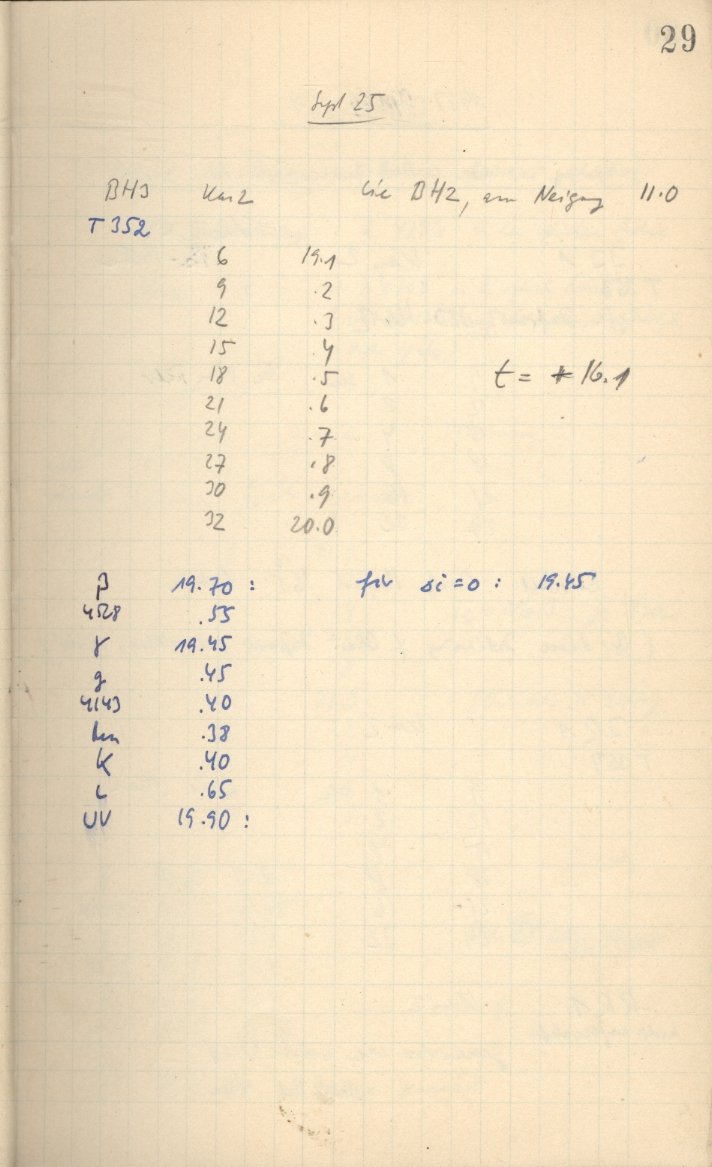 29
Sept 25
BH3 Kas2 wie BH2, nur Neigung 11.0
T 352
6 19.1
9 .2
12 .3
15 .4
18 .5 t = +16.1
21 .6
24 .7
27 .8
30 .9
32 20.0
β 19.70 : für si=0 : 19.45
4528 .55
γ 19.45
g .45
4143 .40
.38
K .40
L .65
UV 19.90 :